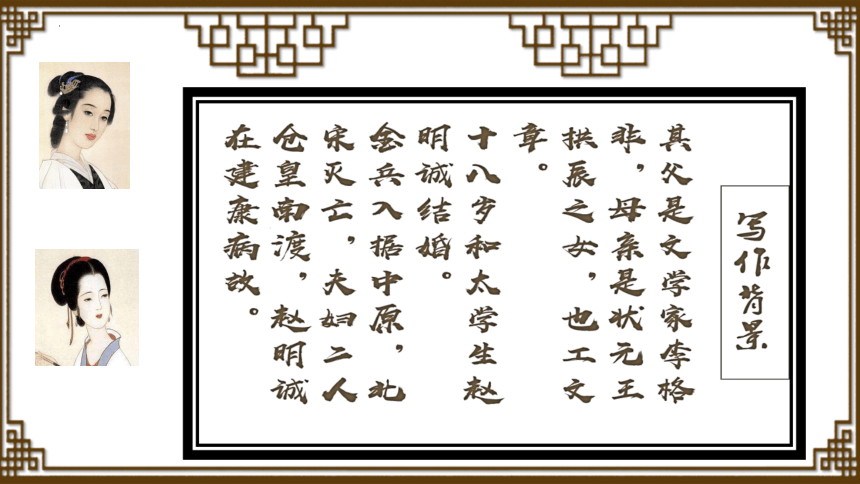 写作背景
其父是文学家李格
非，母亲是状元王
拱辰之女，也工文
章。
十八岁和太学生赵
明诚结婚。
金兵入据中原，北
宋灭亡，夫妇二人
仓皇南渡，赵明诚
在建康病故。